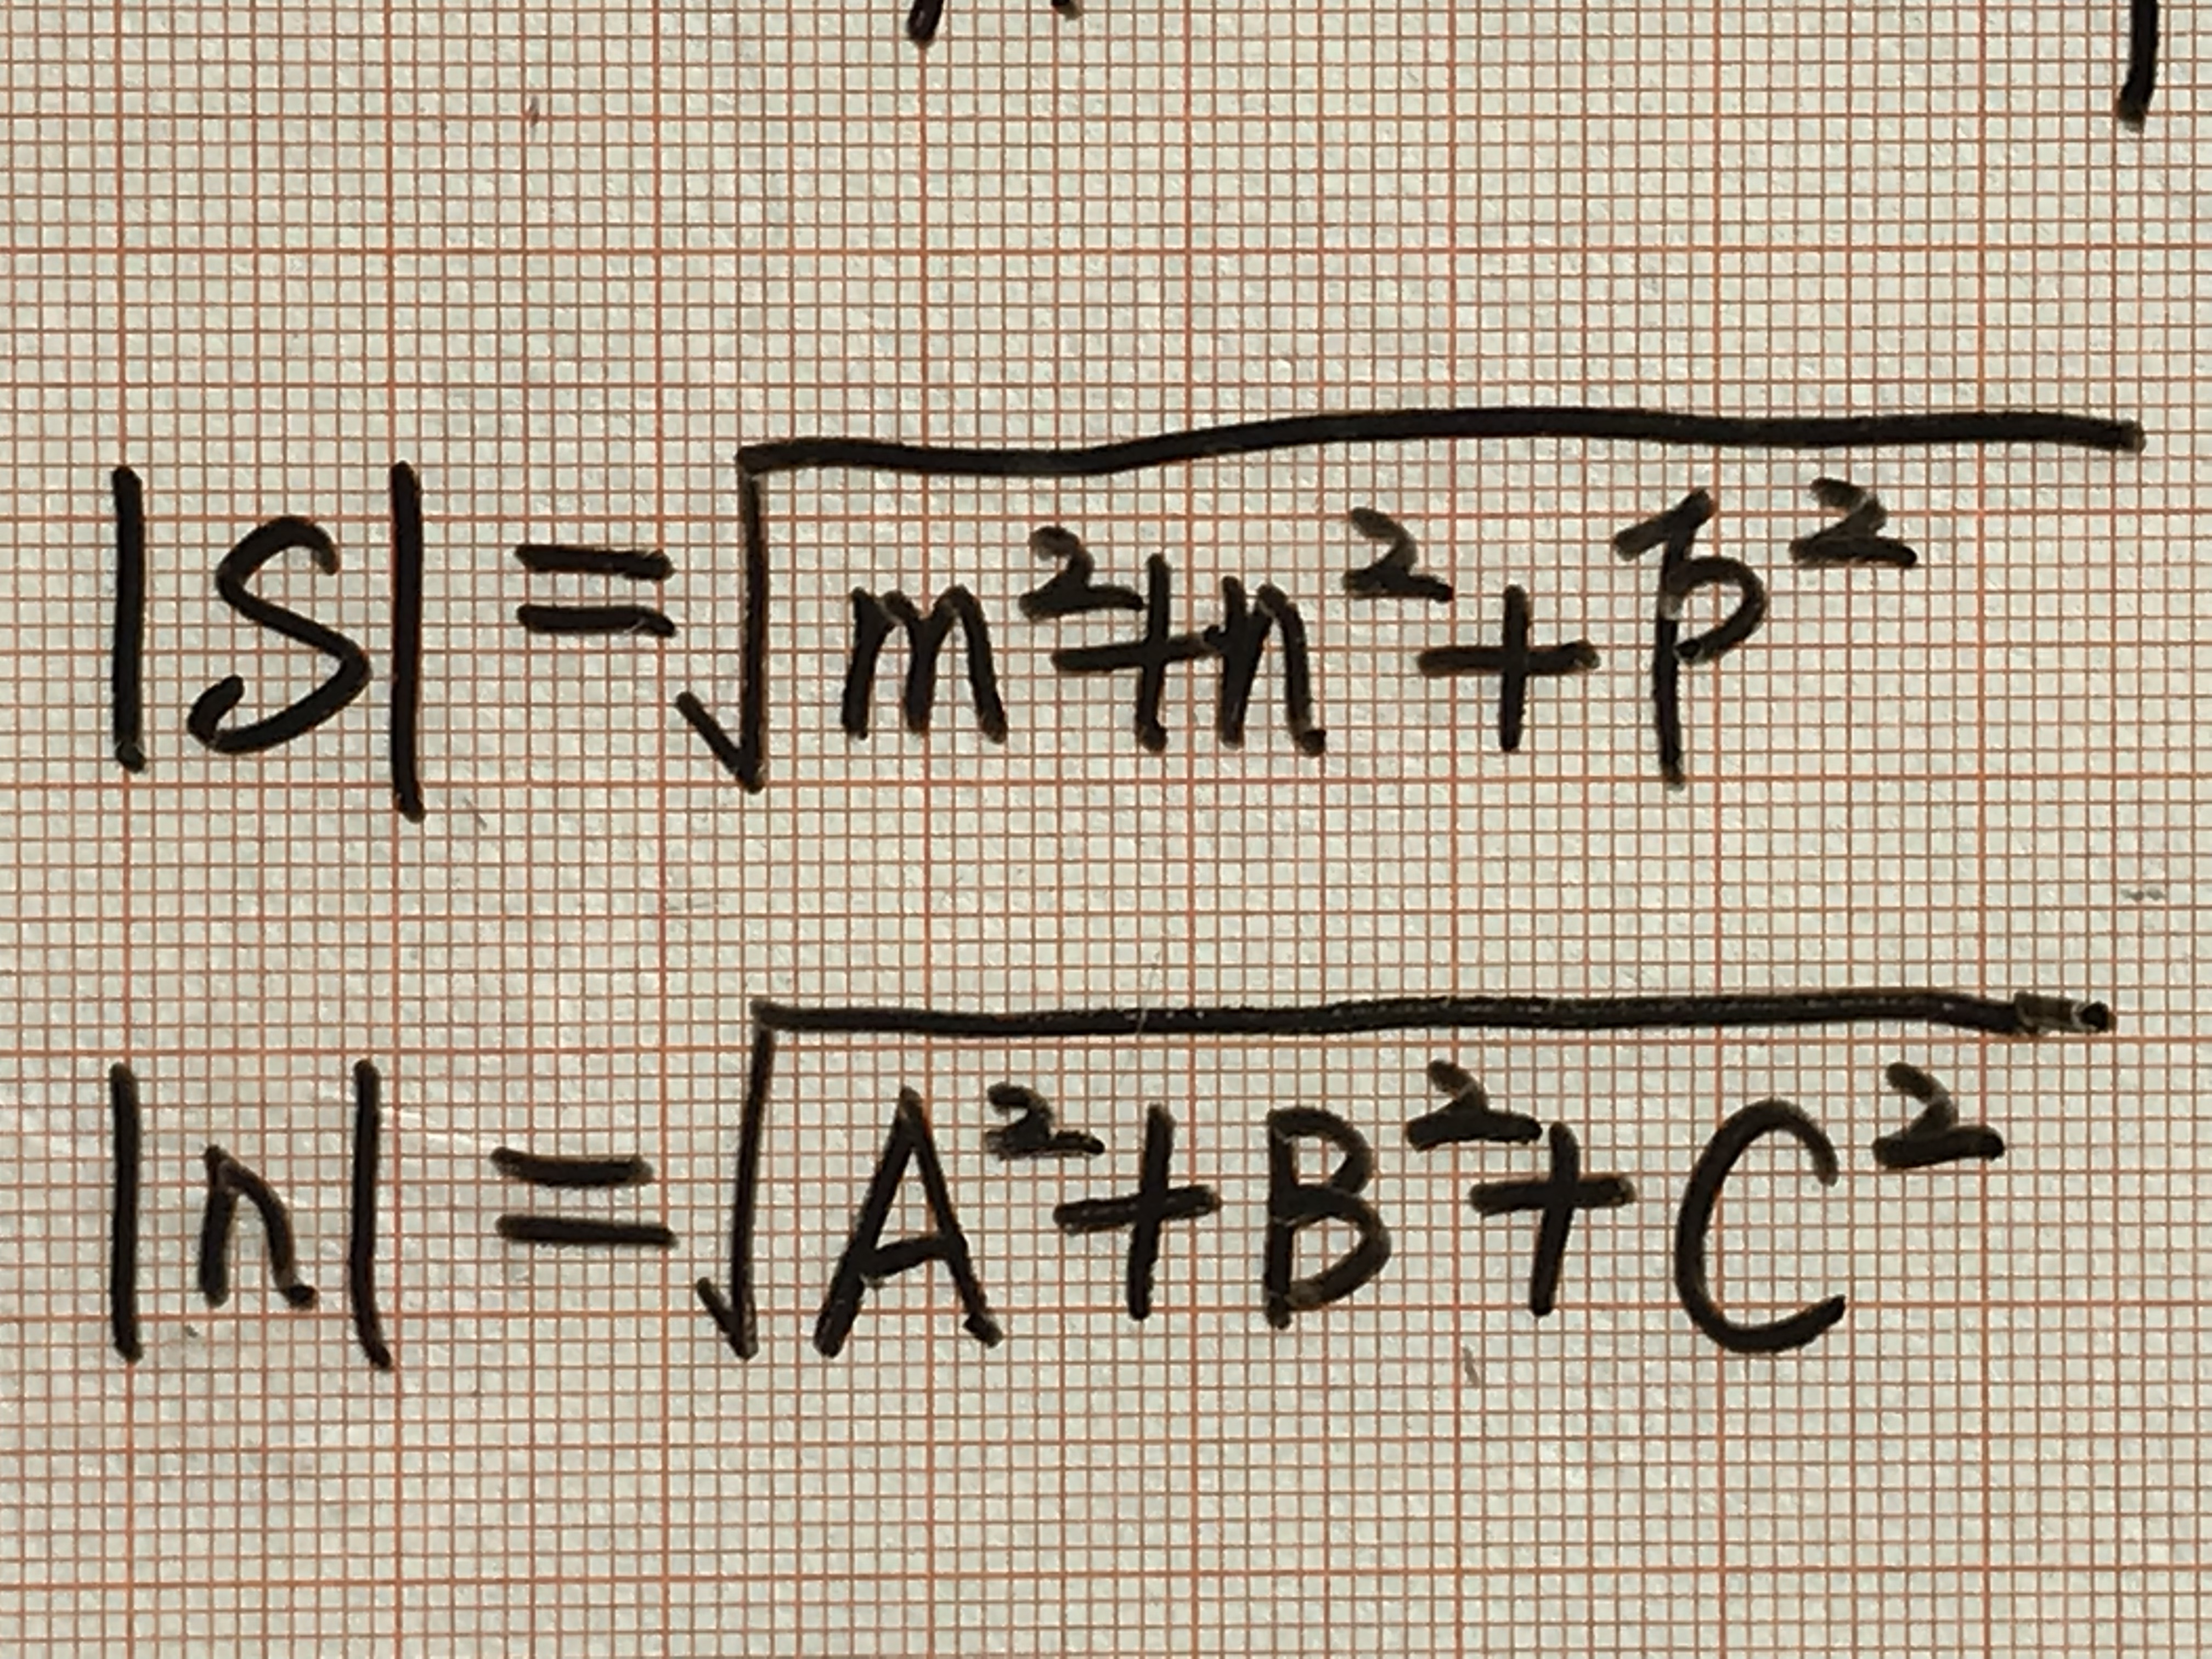 |S| = √(m²+n²+p²)
|n| = √(A²+B²+C²)